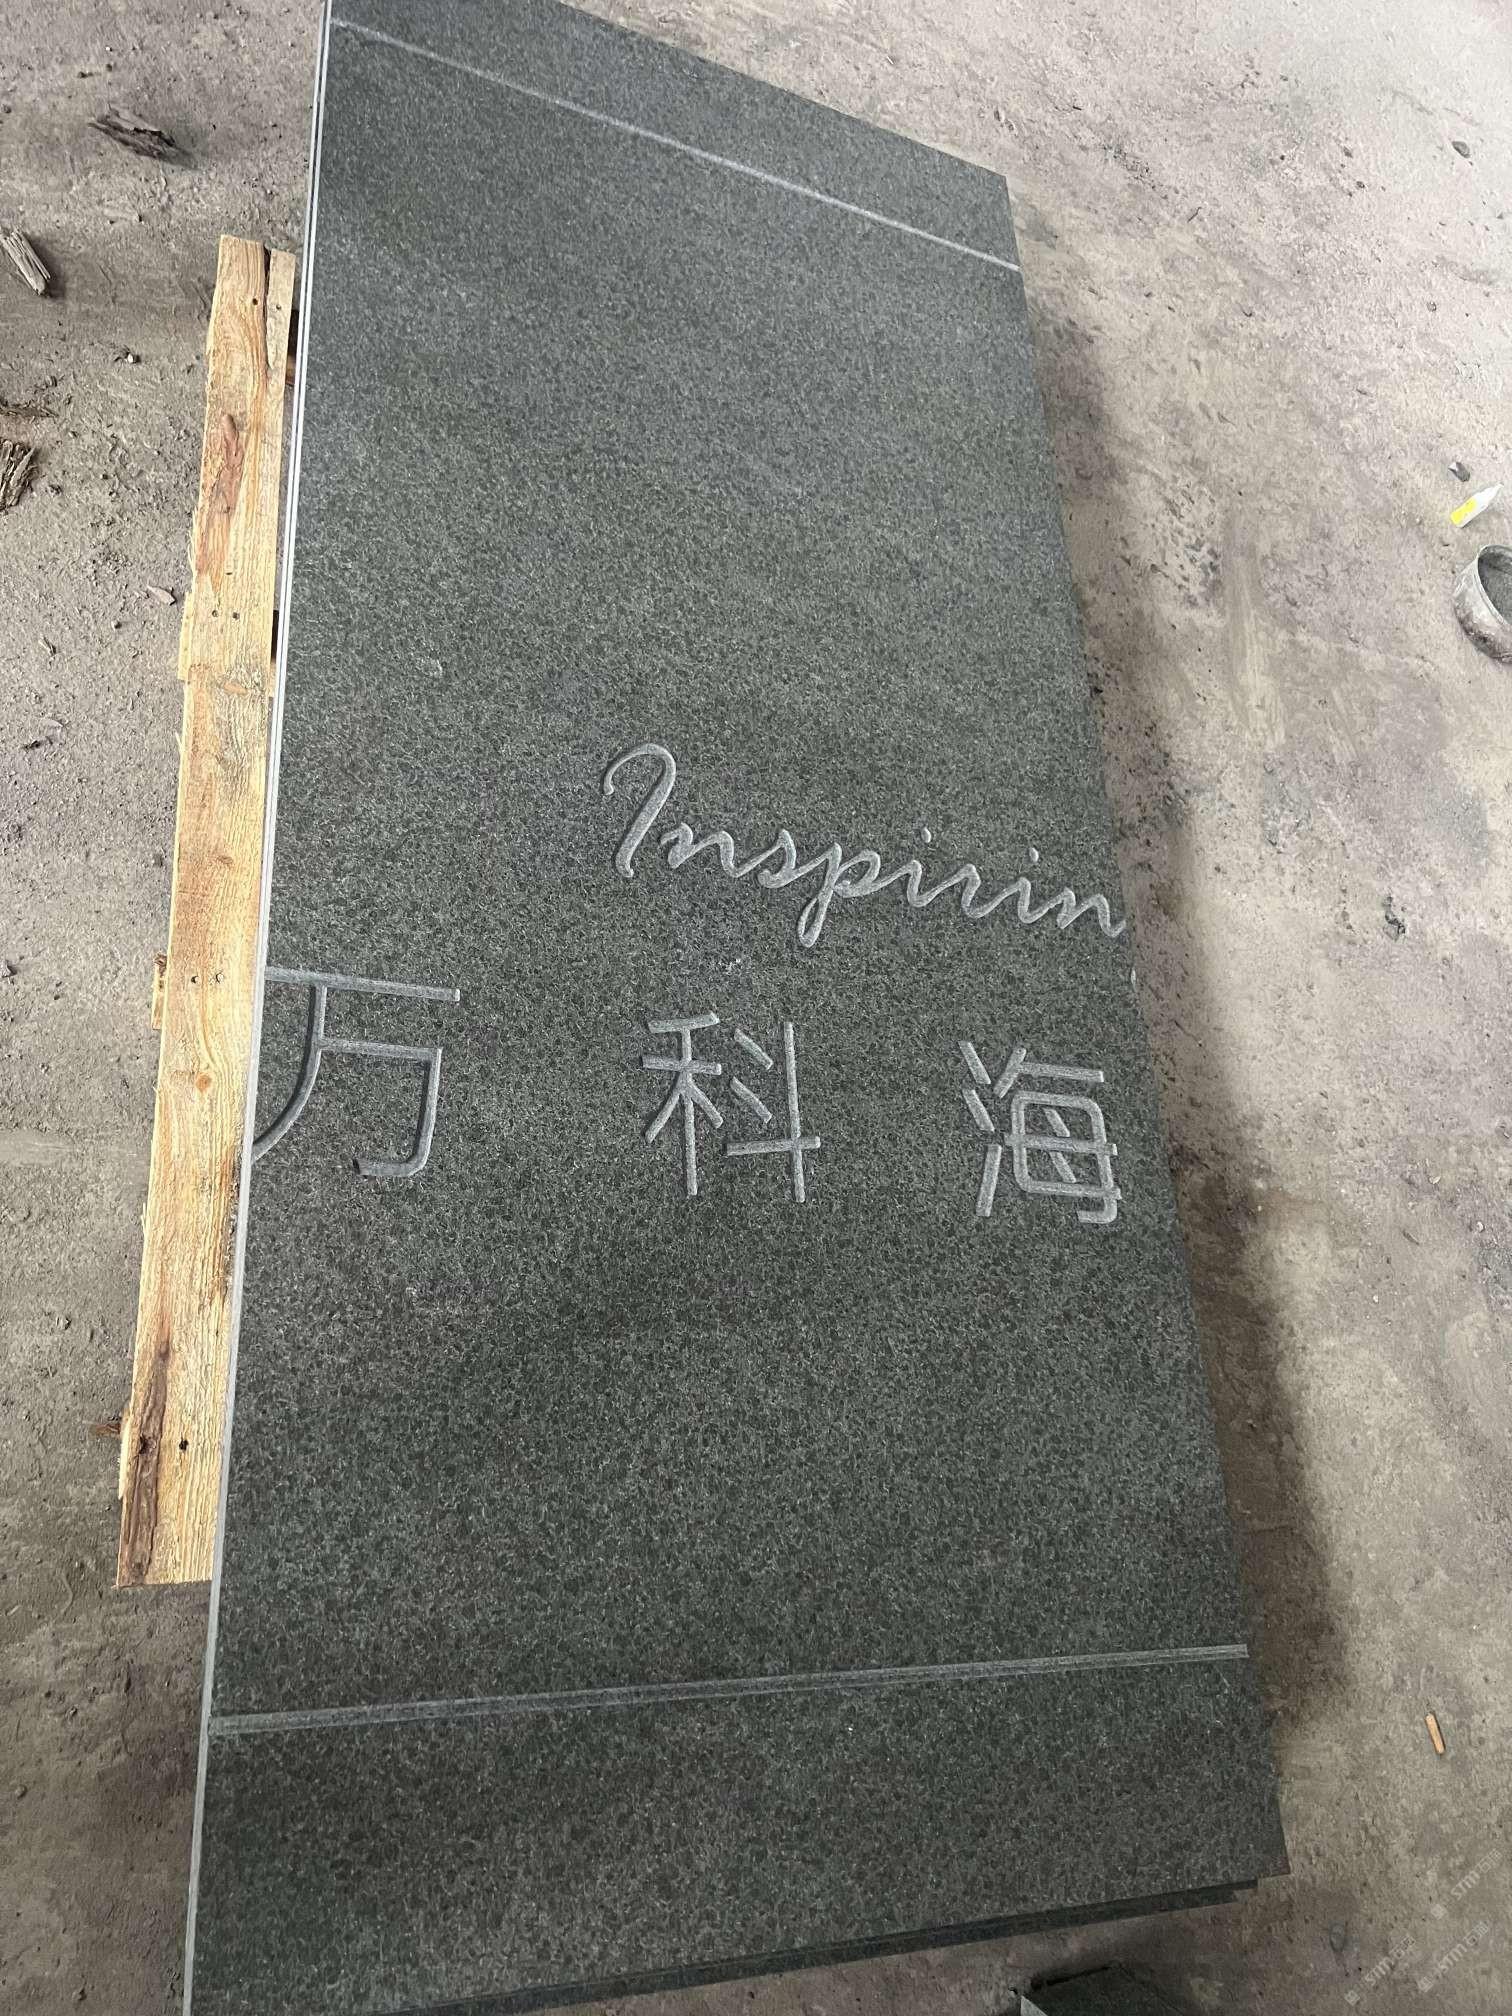 Inspirin
万科海